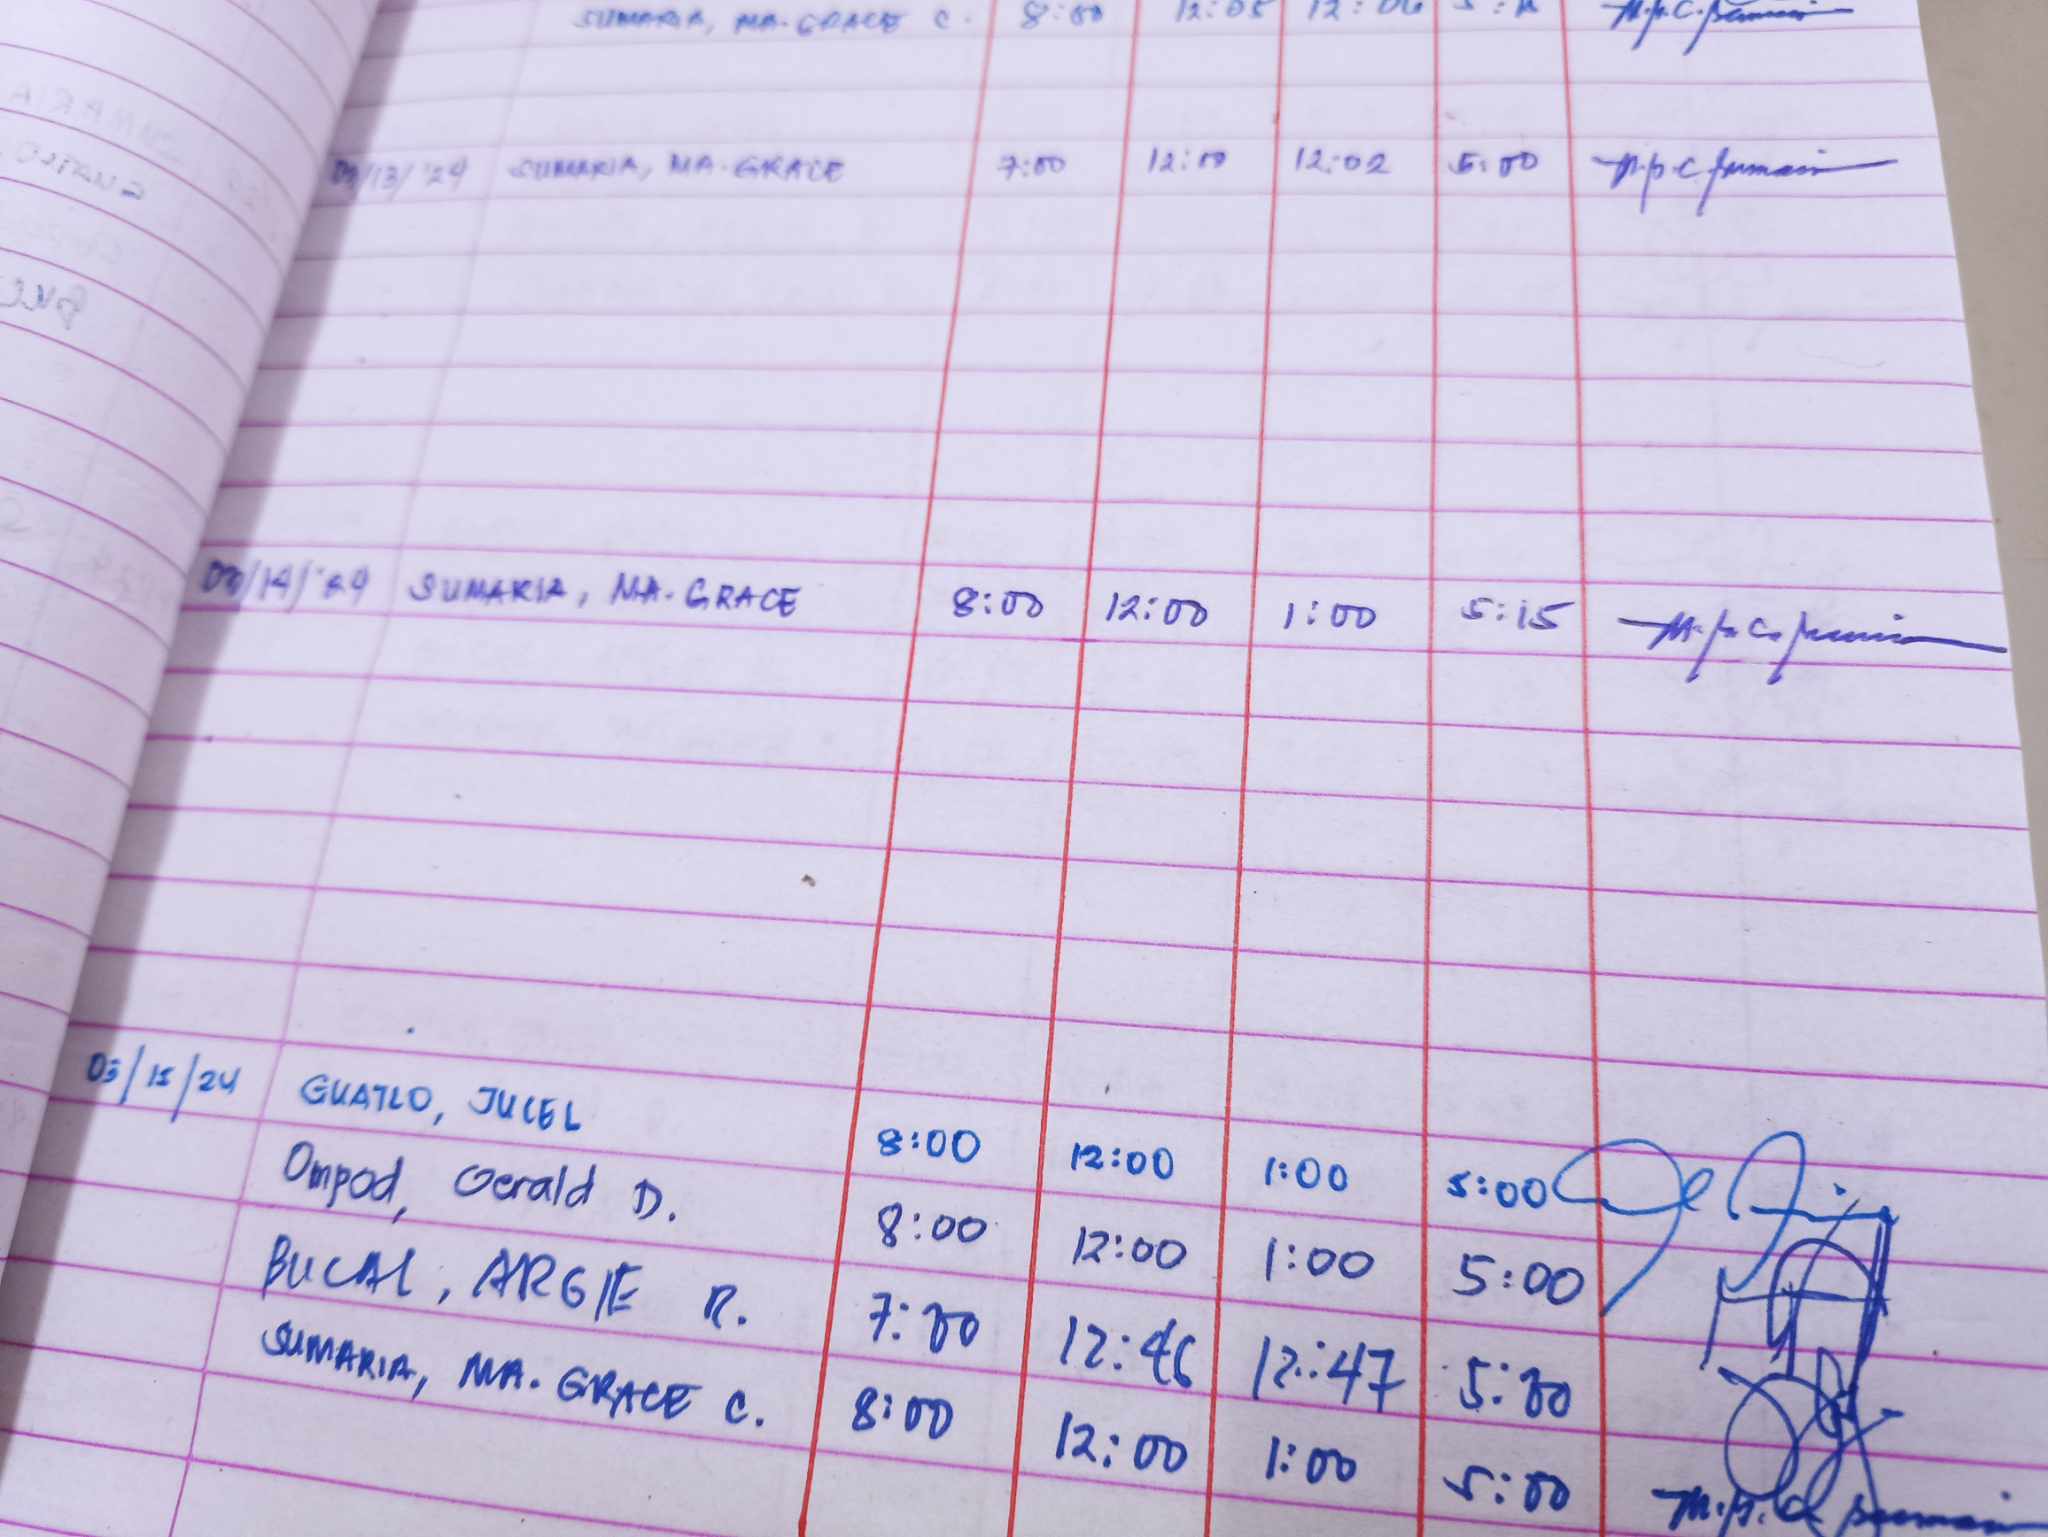 SUMARIA, MA. GRACE C. 8:00 12:05 12:06
03/13/'24 SUMARIA, MA. GRACE 7:00 12:00 12:02 5:00
03/14/'24 SUMARIA, MA. GRACE 8:00 12:00 1:00 5:15
03/15/24 GUATLO, JUCEL 8:00 12:00 1:00 5:00
Ompod, Gerald D. 8:00 12:00 1:00 5:00
BUCAL, ARGIE R. 7:00 12:46 12:47 5:00
SUMARIA, MA. GRACE C. 8:00 12:00 1:00 5:00